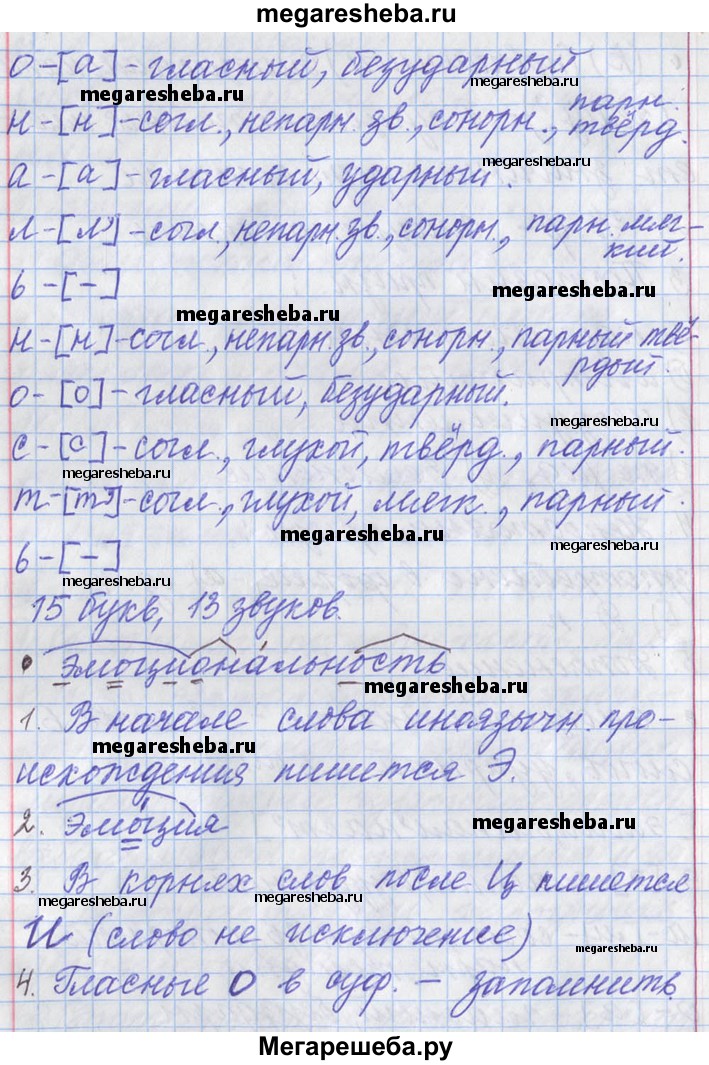 megaresheba.ru
о-[а]-гласный, безударный
megaresheba.ru
megaresheba.ru
н-[н]-согл., непарн. зв., сонорн., парн. твёрд.
megaresheba.ru
а-[а]-гласный, ударный.
л-[л']-согл., непарн. зв., сонорн., парн. мяг-
кий.
ь-[-]
megaresheba.ru
megaresheba.ru
н-[н]-согл., непарн. зв., сонорн., парный твё-
рдый.
о-[о]-гласный, безударный.
megaresheba.ru
с-[с]-согл., глухой, твёрд., парный.
megaresheba.ru
т-[т']-согл., глухой, мягк., парный.
megaresheba.ru
ь-[-]
megaresheba.ru
15 букв, 13 звуков.
эмоциона́льность
megaresheba.ru
1. В начале слова иноязычн. про-
megaresheba.ru
исхождения пишется Э.
2. Эмо́ция
megaresheba.ru
3. В корнях слов после Ц пишется
megaresheba.ru
megaresheba.ru
И (слово не исключение)
megaresheba.ru
4. Гласные О в суф. - запомнить.
Мегарешеба.ру